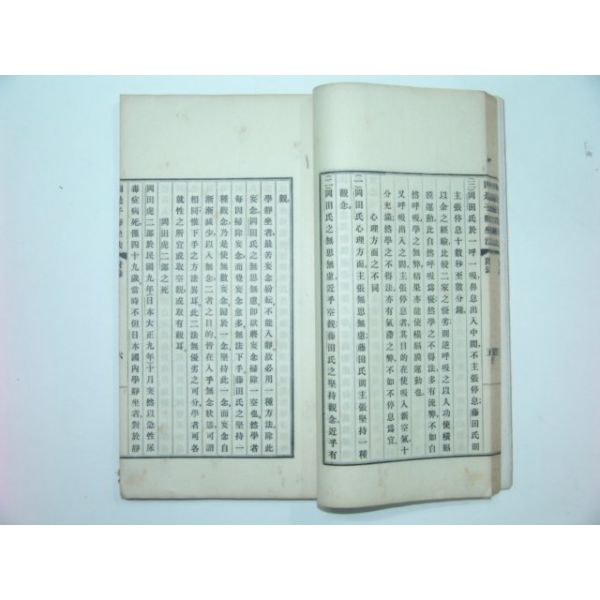 (二)岡田氏於一呼一吸鼻息出入中間不主張停息藤田氏則
主張停息十數秒至數分鐘
以余之經驗比較二家之優劣則逆呼吸之以人功使橫膈
膜運動比自然呼吸爲優然學之不得法多有流弊不如自
然呼吸學之無弊結果亦能使橫膈膜運動也
又呼吸出入之間主張停息者其目的在使吸入新空氣十
分充滿然學之不得法亦有氣滯之弊不如不停息爲宜
心理方面之不同
(一)岡田氏心理方面主張無思無慮藤田氏則主張堅持一種
觀念
(二)岡田氏之無思無慮近乎空觀藤田氏之堅持觀念近乎有
觀
學靜坐者最苦妄念紛紜不能入靜故必用一種方法除此
妄念岡田氏之無思無慮卽欲將妄念掃除一空也然學者
每因掃除妄念而覺妄念愈多無法下手藤田氏之堅持一
種觀念乃是使無數妄念歸於一念堅持此一念而妄念自
漸漸減少以入無念二者之目的皆在入乎無念狀態可謂
相同惟下手之方法異耳此二法無優劣之可分學者可各
就性之所宜或取空觀或取有觀耳
岡田虎二郎之死
岡田虎二郎於民國九年(日本大正九年)十月突然以急性尿
毒症病死僅四十九歲當時不但日本國內學靜坐者對於靜
六